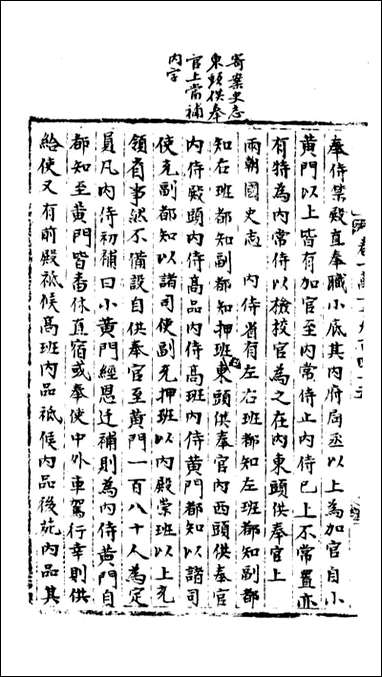 寄案史志
東頭供奉
官上當補
内字
奉侍禁殿直奉職小底其内府局丞以上為加官自小
黄門以上皆有加官至内常侍止内侍已上不常置亦
有特為内常侍以檢校官為之在内東頭供奉官上
兩朝國史志　内侍省有左右班都知左班都知副都
知右班都知副都知押班東頭供奉官内西頭供奉官
内侍殿頭内侍髙品内侍髙班内侍黄門都知以諸司
使充副都知以諸司使副充押班以内殿崇班以上充
領省事然不備設自供奉官至黄門一百八十人為定
員凡内侍初補曰小黄門經恩迁補則為内侍黄門自
都知至黄門皆番休直宿或奉使中外車駕行幸則供
給使又有前殿祗候髙班内品祗候内品後苑内品其